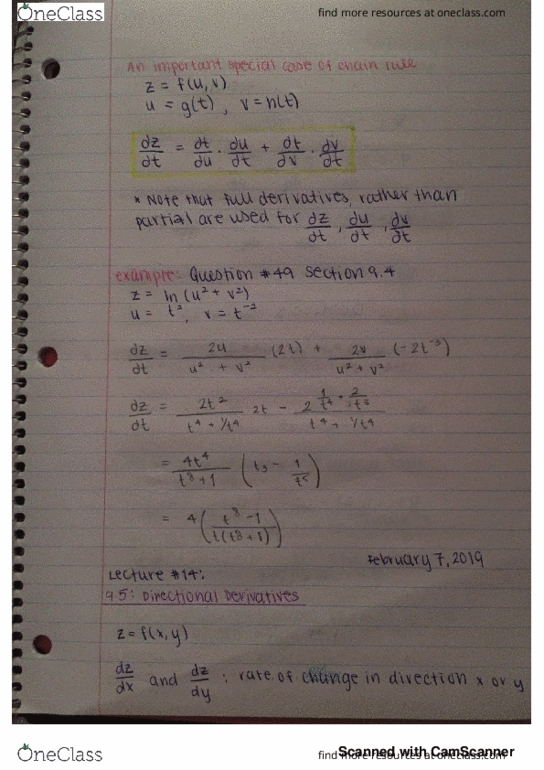 OneClass
find more resources at oneclass.com
An important special case of chain rule
z = f(u, v)
u = g(t) , v = h(t)
dz/dt = ∂f/∂u · du/dt + ∂f/∂v · dv/dt
* Note that full derivatives, rather than
partial are used for dz/dt , du/dt , dv/dt
example: Question #49 section 9.4
z = ln (u² + v²)
u = t², v = t⁻²
dz/dt = 2u/(u² + v²) (2t) + 2v/(u² + v²) (-2t⁻³)
dz/dt = 2t²/(t⁴ + 1/t⁴) 2t - (2 1/t² · 2/t³)/(t⁴ + 1/t⁴)
= 4t⁴/(t⁸+1) (t³ - 1/t⁵)
= 4 ((t⁸-1)/(t(t⁸+1)))
February 7, 2019
Lecture #14:
9.5: Directional Derivatives
z = f(x, y)
dz/dx and dz/dy : rate of change in direction x or y
Scanned with CamScanner
OneClass
find more resources at oneclass.com